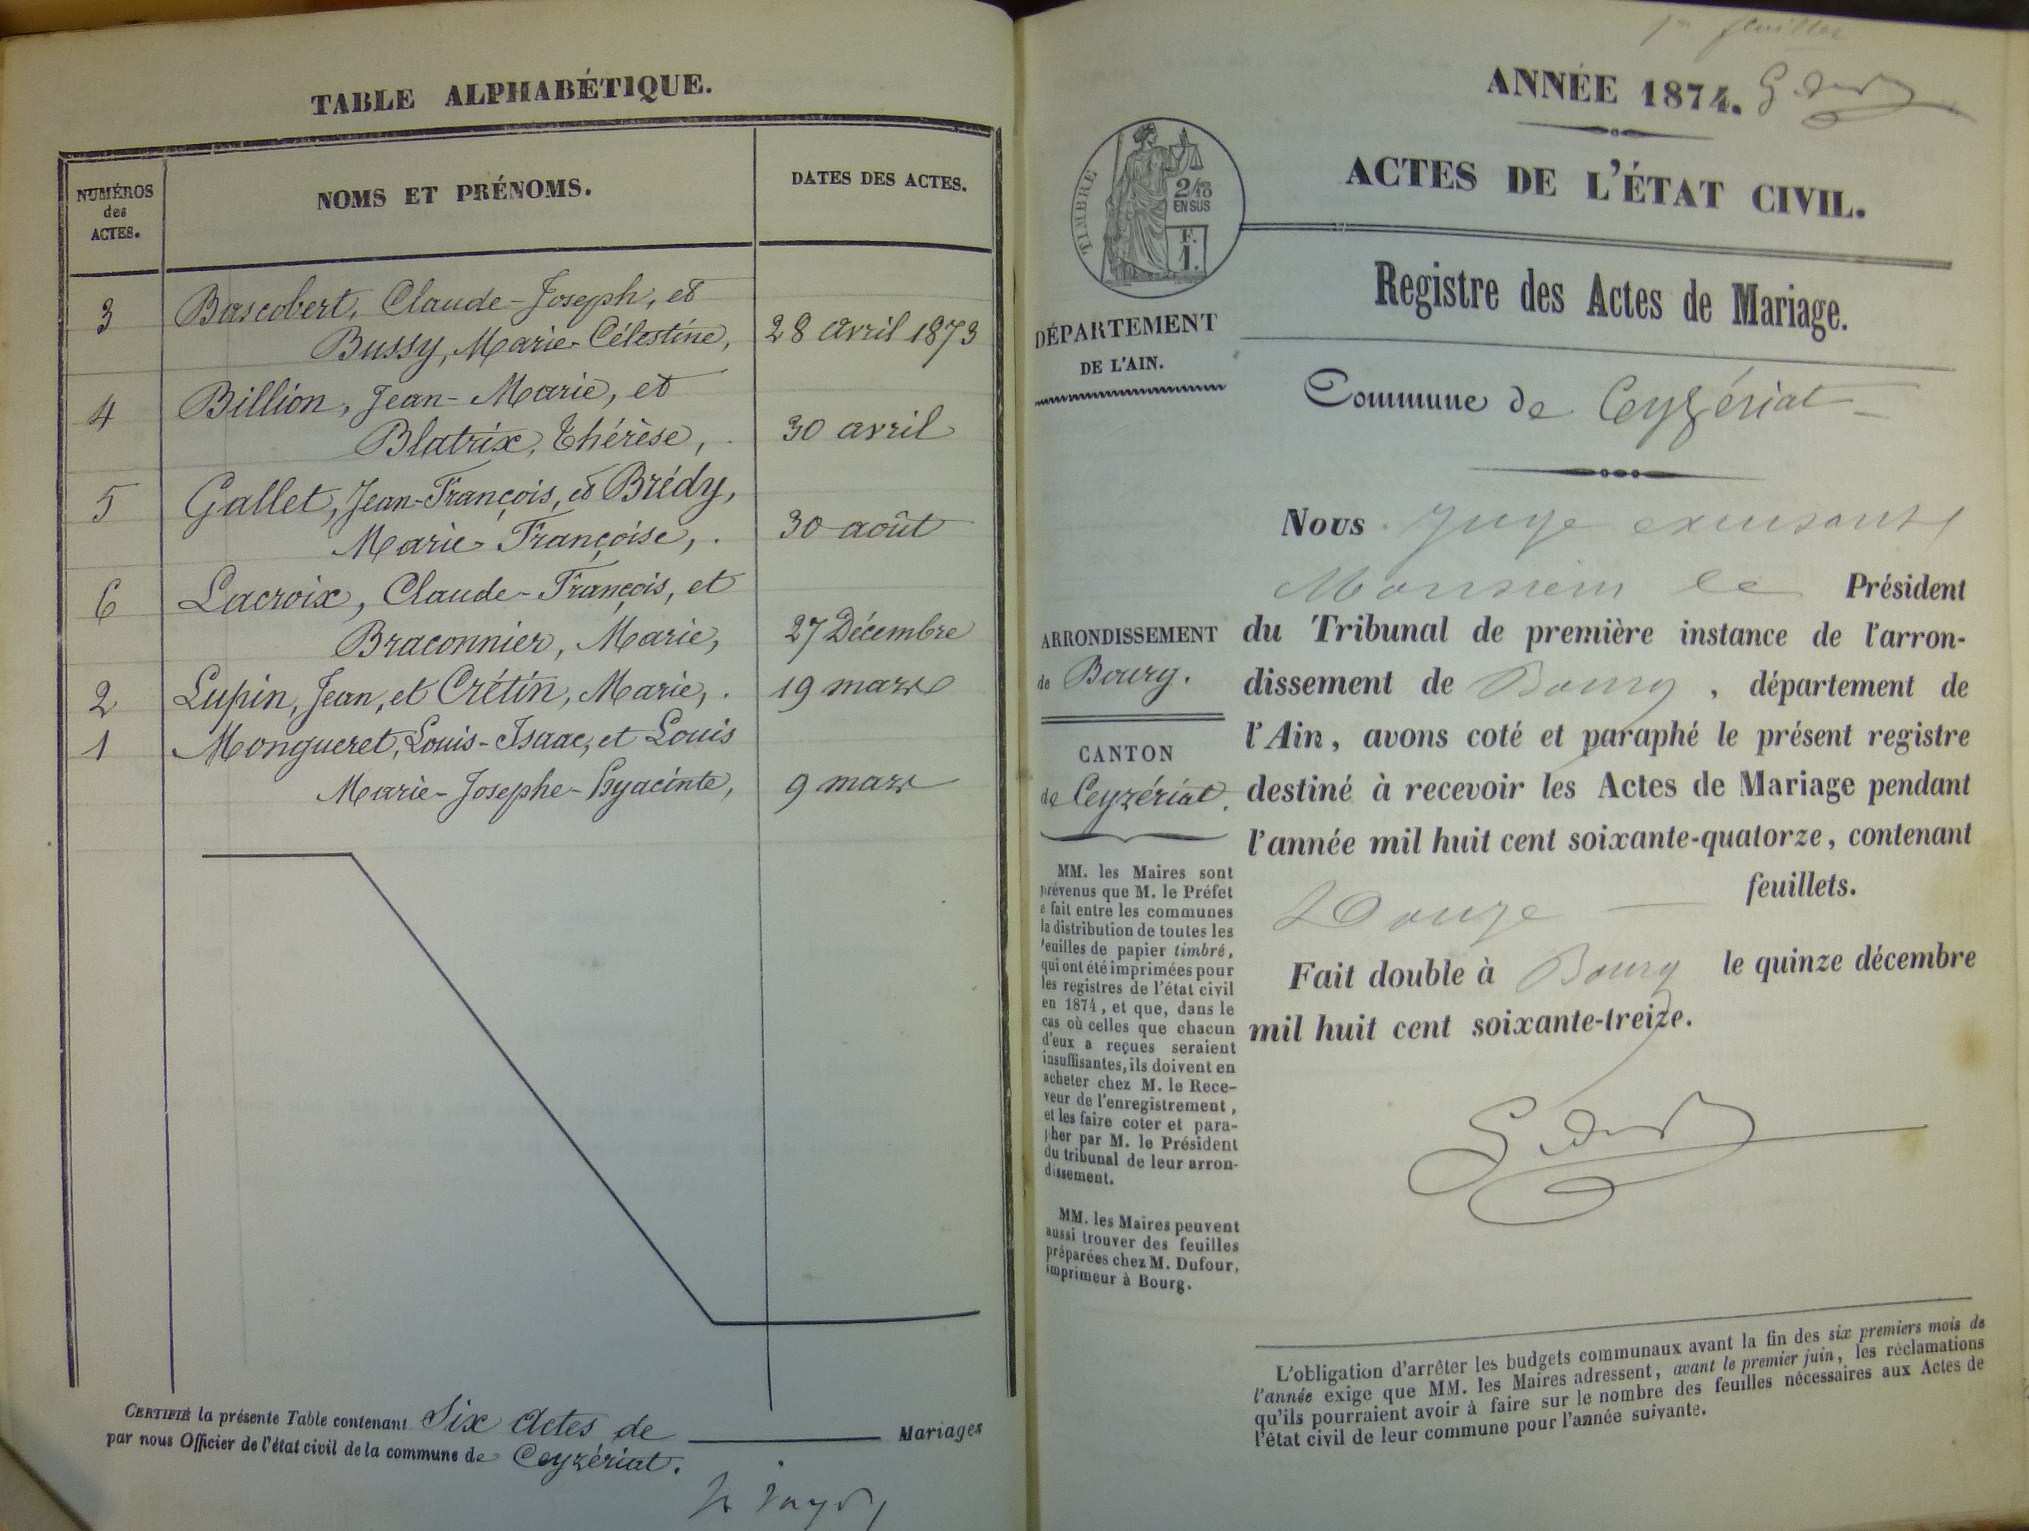 TABLE ALPHABÉTIQUE.
NUMÉROS
des
ACTES.
NOMS ET PRÉNOMS.
DATES DES ACTES.
3 Bascobert, Claude-Joseph, et
Bussy, Marie-Célestine, 28 avril 1873
4 Billion, Jean-Marie, et
Blatrix, Thérèse, 30 avril
5 Gallet, Jean-François, et Brédy,
Marie Françoise, 30 août
6 Lacroix, Claude-François, et
Braconnier, Marie, 27 Décembre
2 Lupin, Jean, et Crétin, Marie, 19 mars
1 Mongueret, Louis-Isaac, et Louis
Marie-Josephe-Hyacinte, 9 mars
CERTIFIÉ la présente Table contenant Six Actes de Mariages
par nous Officier de l'état civil de la commune de Ceyzériat.
feuillet
ANNÉE 1874.
ACTES DE L'ÉTAT CIVIL.
TIMBRE
2/10
EN SUS
F.
1.
Registre des Actes de Mariage.
DÉPARTEMENT
DE L'AIN.
Commune de Ceyzériat
ARRONDISSEMENT
de Bourg.
CANTON
de Ceyzériat.
MM. les Maires sont
prévenus que M. le Préfet
a fait entre les communes
la distribution de toutes les
feuilles de papier timbré,
qui ont été imprimées pour
les registres de l'état civil
en 1874, et que, dans le
cas où celles que chacun
d'eux a reçues seraient
insuffisantes, ils doivent en
acheter chez M. le Rece-
veur de l'enregistrement,
et les faire coter et para-
pher par M. le Président
du tribunal de leur arron-
dissement.
MM. les Maires peuvent
aussi trouver des feuilles
préparées chez M. Dufour,
imprimeur à Bourg.
Nous Juge
Monsieur le Président
du Tribunal de première instance de l'arron-
dissement de Bourg, département de
l'Ain, avons coté et paraphé le présent registre
destiné à recevoir les Actes de Mariage pendant
l'année mil huit cent soixante-quatorze, contenant
Douze feuillets.
Fait double à Bourg le quinze décembre
mil huit cent soixante-treize.
L'obligation d'arrêter les budgets communaux avant la fin des six premiers mois de
l'année exige que MM. les Maires adressent, avant le premier juin, les réclamations
qu'ils pourraient avoir à faire sur le nombre des feuilles nécessaires aux Actes de
l'état civil de leur commune pour l'année suivante.